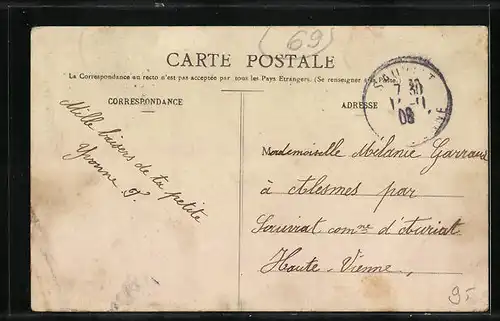 (69)
CARTE POSTALE
La Correspondance au recto n'est pas acceptée par tous les Pays Etrangers. (Se renseigner à la Poste)
CORRESPONDANCE
Mille baisers de ta petite
Yvonne P.
ADRESSE
7 30
08
Mademoiselle Mélanie Garraud
à Alesmes par
Sauviat comne d'Auriat
Haute-Vienne,
9-